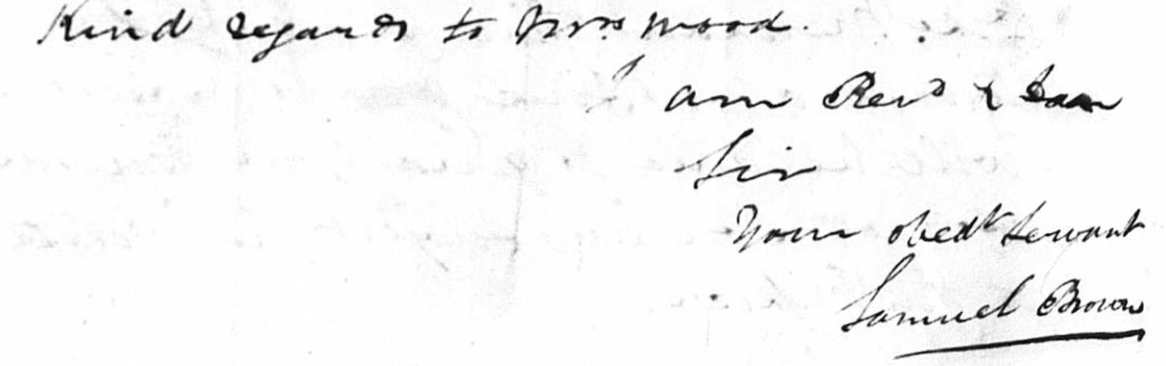 Kind regards to Mrs Wood.
I am Revd & Dear
Sir
Your obedt Servant
Samuel Brown